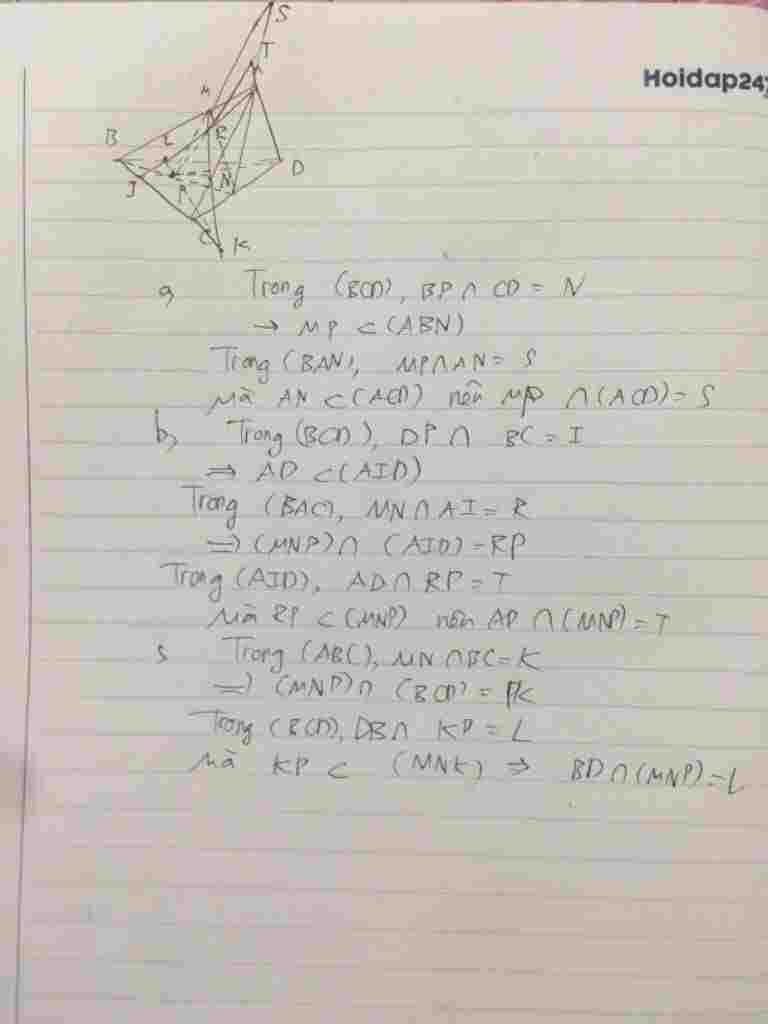 S
T
Hoidap247
M
B
L
R
D
I
P
N
C
K
a, Trong (BCD), BP ∩ CD = N
→ MP ⊂ (ABN)
Trong (BAN), MP ∩ AN = S
Mà AN ⊂ (ACD) nên MP ∩ (ACD) = S
b, Trong (BCD), DP ∩ BC = I
⇒ AD ⊂ (AID)
Trong (BAC), MN ∩ AI = R
⇒ (MNP) ∩ (AID) = RP
Trong (AID), AD ∩ RP = T
Mà RP ⊂ (MNP) nên AP ∩ (MNP) = T
Trong (ABC), MN ∩ BC = K
⇒ (MNP) ∩ (BCD) = PK
Trong (BCD), DB ∩ KP = L
Mà KP ⊂ (MNK) ⇒ BD ∩ (MNP) = L